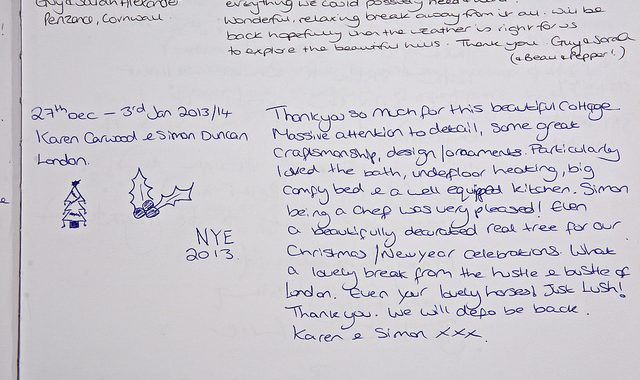 Guy & Sarah Alexander
Penzance, Cornwall
everything we could possibly need
wonderful, relaxing break away from it all. Will be
back hopefully when the weather is right for us
to explore the beautiful hills. Thank you. Guy & Sarah
(& Beau & Pepper!)
27th Dec – 3rd Jan 2013/14
Karen Carwood & Simon Duncan
London.
NYE
2013.
Thankyou so much for this beautiful cottage.
Massive attention to detail, some great
craftsmanship, design/ornaments. Particularly
loved the bath, underfloor heating, big
comfy bed & a well equipped kitchen. Simon
being a chef was very pleased! Even
a beautifully decorated real tree for our
Christmas/Newyear celebrations. What
a lovely break from the hustle & bustle of
London. Even your lovely horses! Just Lush!
Thankyou. We will defo be back.
Karen & Simon xxx.